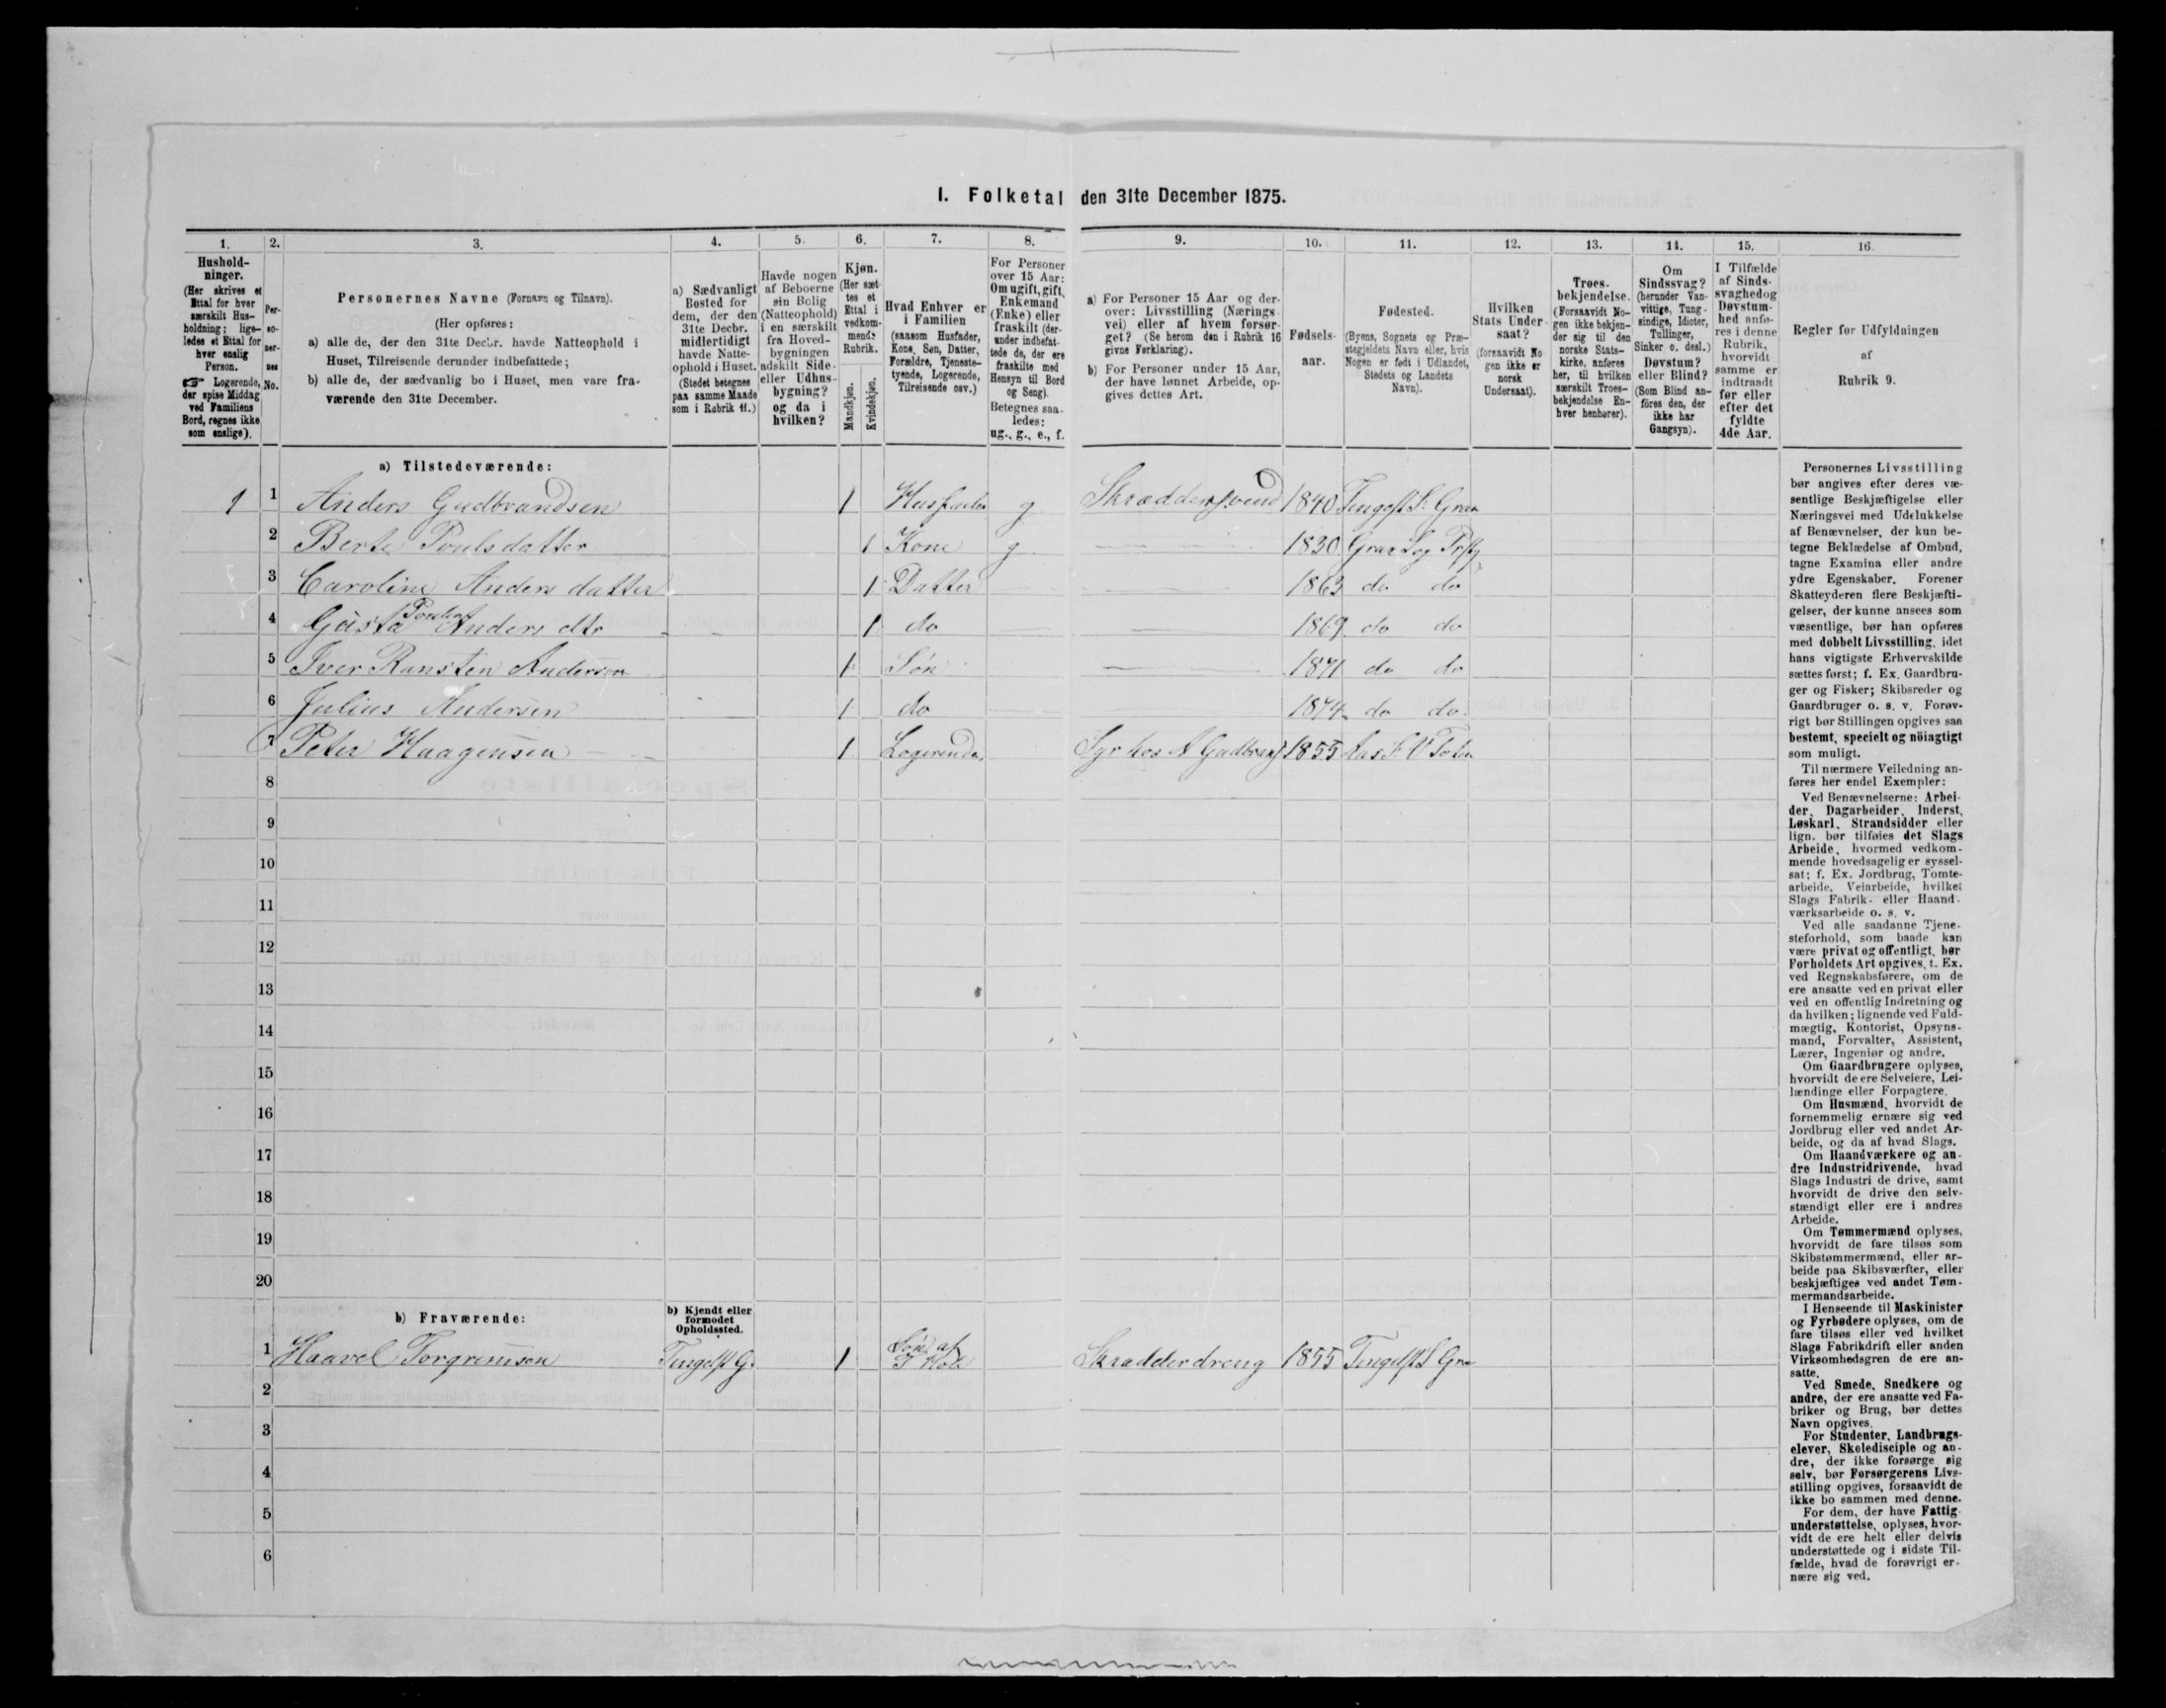 I. Folketal den 31te December 1875.
1. 2. 3. 4. 5. 6. 7. 8. 9. 10. 11. 12. 13. 14. 15. 16.
Hushold-
ninger.
(Her skrives et
Ettal for hver
særskilt Hus-
holdning; lige-
ledes et Ettal for
hver enslig
Person.
☞ Logerende,
der spise Middag
ved Familiens
Bord, regnes ikke
som enslige).
Per-
so-
ner-
nes
No.
Personernes Navne (Fornavn og Tilnavn).
(Her opføres:
a) alle de, der den 31te Decbr. havde Natteophold i
Huset, Tilreisende derunder indbefattede;
b) alle de, der sædvanlig bo i Huset, men vare fra-
værende den 31te December.
a) Sædvanligt
Bosted for
dem, der den
31te Decbr.
midlertidigt
havde Natte-
ophold i Huset.
(Stedet betegnes
paa samme Maade
som i Rubrik 11.)
Havde nogen
af Beboerne
sin Bolig
(Natteophold)
i en særskilt
fra Hoved-
bygningen
adskilt Side-
eller Udhus-
bygning?
og da i
hvilken?
Kjøn.
(Her sæt-
tes et
Ettal i
vedkom-
mende
Rubrik.
Mandkjøn.
Kvindekjøn.
Hvad Enhver er
i Familien
(saasom Husfader,
Kone, Søn, Datter,
Forældre, Tjeneste-
tyende, Logerende,
Tilreisende osv.)
For Personer
over 15 Aar:
Om ugift, gift,
Enkemand
(Enke) eller
fraskilt (der-
under indbefat-
tede de, der ere
fraskilte med
Hensyn til Bord
og Seng).
Betegnes saa-
ledes:
ug., g., e., f.
a) For Personer 15 Aar og der-
over: Livsstilling (Nærings-
vei) eller af hvem forsør-
get? (Se herom den i Rubrik 16
givne Forklaring).
b) For Personer under 15 Aar,
der have lønnet Arbeide, op-
gives dettes Art.
Fødsels-
aar.
Fødested.
(Byens, Sognets og Præ-
stegjeldets Navn eller, hvis
Nogen er født i Udlandet,
Stedets og Landets
Navn).
Hvilken
Stats Under-
saat?
(forsaavidt No
gen ikke er
norsk
Undersaat).
Troes-
bekjendelse.
(Forsaavidt No-
gen ikke bekjen-
der sig til den
norske Stats-
kirke, anføres
her, til hvilken
særskilt Troes-
bekjendelse En-
hver henhører).
Om
Sindssvag?
(herunder Van-
vittige, Tung-
sindige, Idioter,
Tullinger,
Sinker o. desl.)
Døvstum?
eller Blind?
(Som Blind an-
føres den, der
ikke har
Gangsyn).
I Tilfælde
af Sinds-
svaghed og
Døvstum-
hed anfø-
res i denne
Rubrik,
hvorvidt
samme er
indtraadt
før eller
efter det
fyldte
4de Aar.
Regler for Udfyldningen
af
Rubrik 9.
a) Tilstedeværende:
1 1 Anders Gudbrandsen 1 Husfader g Skræddersvend 1840 Tingelst S. Gran
2 Berte Poulsdatter 1 Kone g 1830 Gran Sog Prstg
3 Caroline Andersdatter 1 Datter 1863 do do
4 Gusta Anders dtr 1 do 1869 do do
5 Iver Ranstin Andersen 1 Søn 1871 do do
6 Julius Andersen 1 do 1874 do do
7 Peter Haagensen 1 Logerende Syr hos A Gudbrans 1855 Aas S. V Toten
8
9
10
11
12
13
14
15
16
17
18
19
20
b) Fraværende:
b) Kjendt eller
formodet
Opholdssted.
1 Haavel Torgrimsen Tingelst G. 1 Søn af Skradderdreng 1855 Tingelst S Gra
2
3
4
5
6
Personernes Livsstilling
bør angives efter deres væ-
sentlige Beskjæftigelse eller
Næringsvei med Udelukkelse
af Benævnelser, der kun be-
tegne Beklædelse af Ombud,
tagne Examina eller andre
ydre Egenskaber. Forener
Skatteyderen flere Beskjæfti-
gelser, der kunne ansees som
væsentlige, bør han opføres
med dobbelt Livsstilling, idet
hans vigtigste Erhvervskilde
sættes først; f. Ex. Gaardbru-
ger og Fisker; Skibsreder og
Gaardbruger o. s. v. Forøv-
rigt bør Stillingen opgives saa
bestemt, specielt og nöiagtigt
som muligt.
Til nærmere Veiledning an-
føres her endel Exempler:
Ved Benævnelserne: Arbei-
der, Dagarbeider, Inderst,
Løskarl, Strandsidder eller
lign. bør tilføies det Slags
Arbeide, hvormed vedkom-
mende hovedsagelig er syssel-
sat; f. Ex. Jordbrug, Tomte-
arbeide, Veiarbeide, hvilket
Slags Fabrik- eller Haand-
værksarbeide o. s. v.
Ved alle saadanne Tjene-
steforhold, som baade kan
være privat og offentligt, bør
Forholdets Art opgives, t. Ex.
ved Regnskabsførere, om de
ere ansatte ved en privat eller
ved en offentlig Indretning og
da hvilken; lignende ved Fuld-
mægtig, Kontorist, Opsyns-
mand, Forvalter, Assistent,
Lærer, Ingeniør og andre.
Om Gaardbrugere oplyses,
hvorvidt de ere Selveiere, Lei-
lændinge eller Forpagtere.
Om Husmænd, hvorvidt de
fornemmelig ernære sig ved
Jordbrug eller ved andet Ar-
beide, og da af hvad Slags.
Om Haandværkere og an-
dre Industridrivende, hvad
Slags Industri de drive, samt
hvorvidt de drive den selv-
stændigt eller ere i andres
Arbeide.
Om Tømmermænd oplyses,
hvorvidt de fare tilsøs som
Skibstømmermænd, eller ar-
beide paa Skibsværfter, eller
beskjæftiges ved andet Tøm-
mermandsarbeide.
I Henseende til Maskinister
og Fyrbødere oplyses, om de
fare tilsøs eller ved hvilket
Slags Fabrikdrift eller anden
Virksomhedsgren de ere an-
satte.
Ved Smede, Snedkere og
andre, der ere ansatte ved Fa-
briker og Brug, bør dettes
Navn opgives.
For Studenter, Landbrugs-
elever, Skoledisciple og an-
dre, der ikke forsørge sig
selv, bør Forsørgerens Livs-
stilling opgives, forsaavidt de
ikke bo sammen med denne.
For dem, der have Fattig-
understøttelse, oplyses, hvor-
vidt de ere helt eller delvis
understøttede og i sidste Til-
fælde, hvad de forøvrigt er-
nære sig ved.